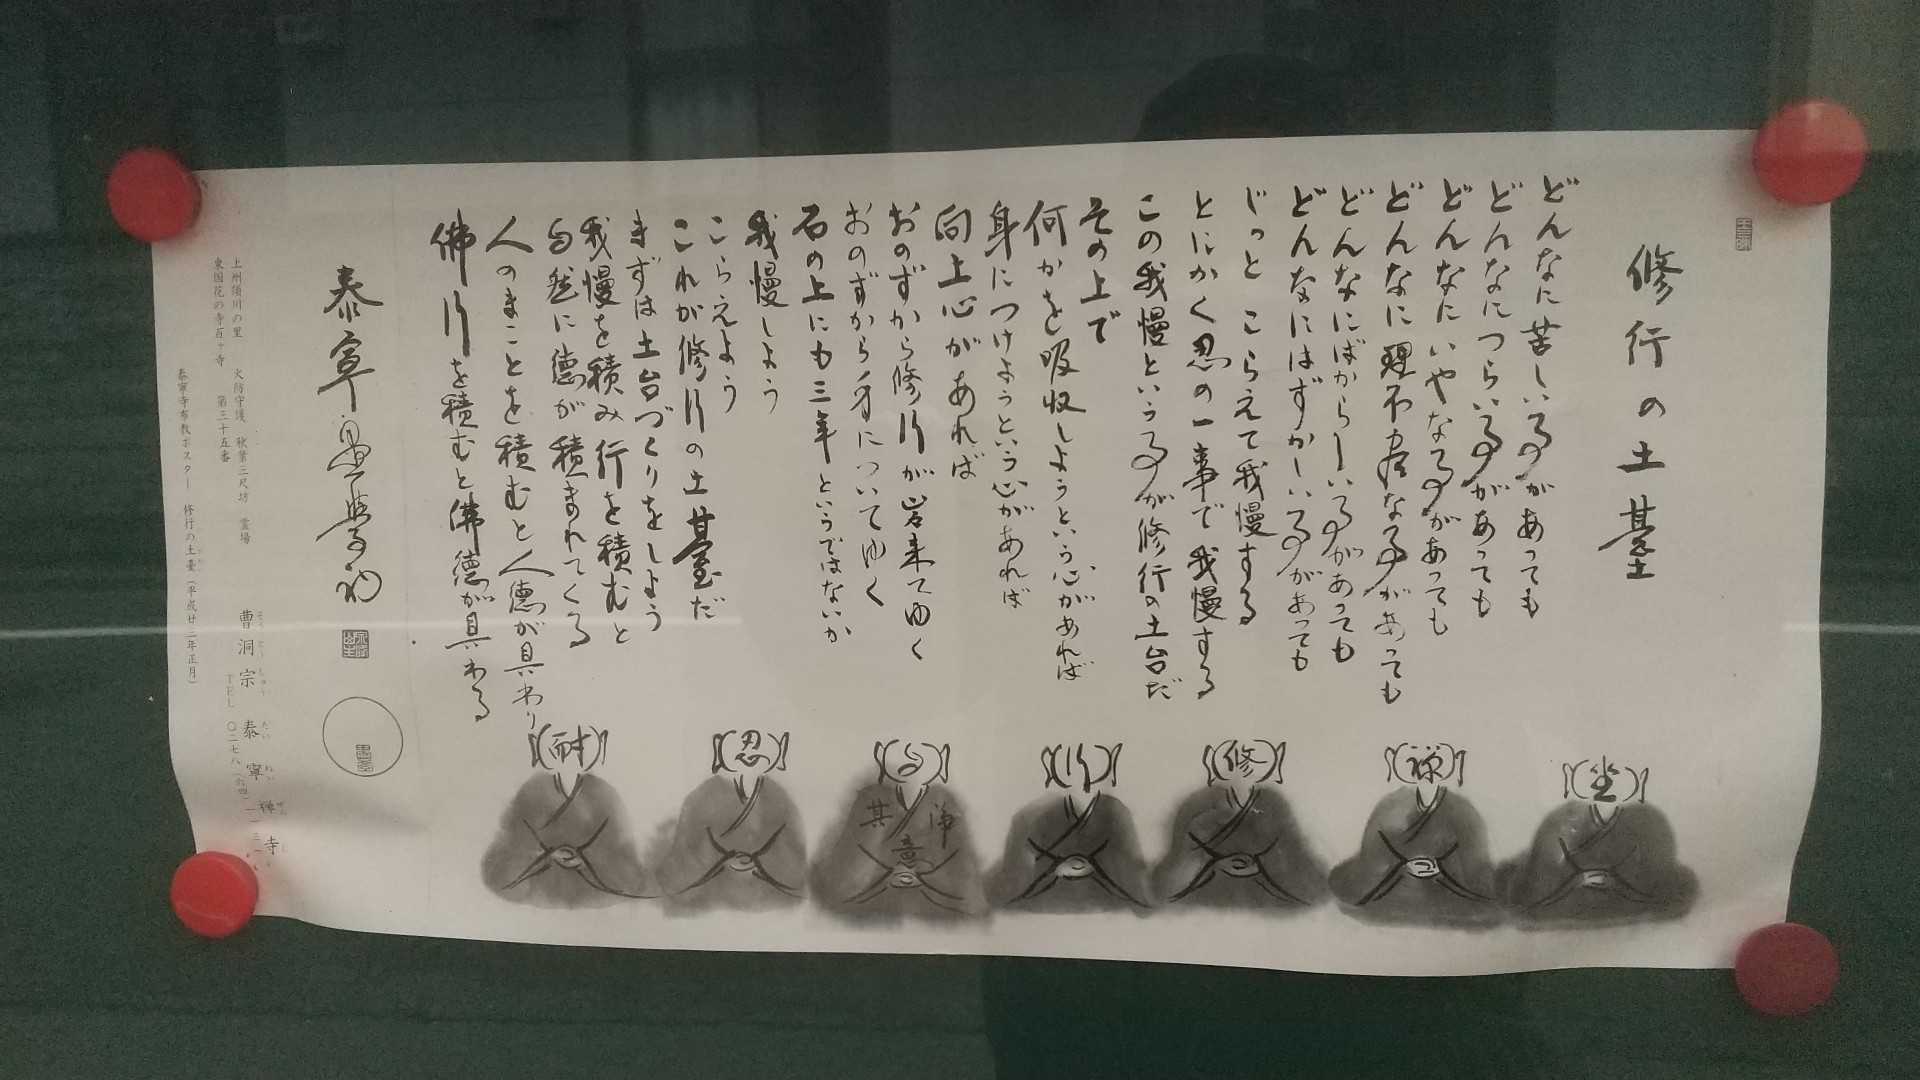 修行の土臺
どんなに苦しい事があっても
どんなにつらい事があっても
どんなにいやな事があっても
どんなに理不尽な事があっても
どんなにばからしい事があっても
どんなにはずかしい事があっても
じっとこらえて我慢する
とにかく忍の一事で我慢する
この我慢という事が修行の土台だ
その上で
何かを吸収しようという心があれば
身につけようという心があれば
向上心があれば
おのずから修行が出来てゆく
おのずから身についてゆく
石の上にも三年というではないか
我慢しよう
こらえよう
これが修行の土臺だ
まずは土台づくりをしよう
我慢を積み行を積むと
自然に德が積まれてくる
人のまことを積むと人德が具わり
佛行を積むと佛德が具わる
泰寧
坐
禅
修
行
自
浄
其
意
忍
耐
上州須川の里 火防守護 秋葉三尺坊 霊場
東国花の寺百ヶ寺 第三十五番
曹洞宗 泰寧禅寺
そうとうしゅう たいねいぜんじ
泰寧寺布教ポスター 修行の土臺（平成廿二年正月）